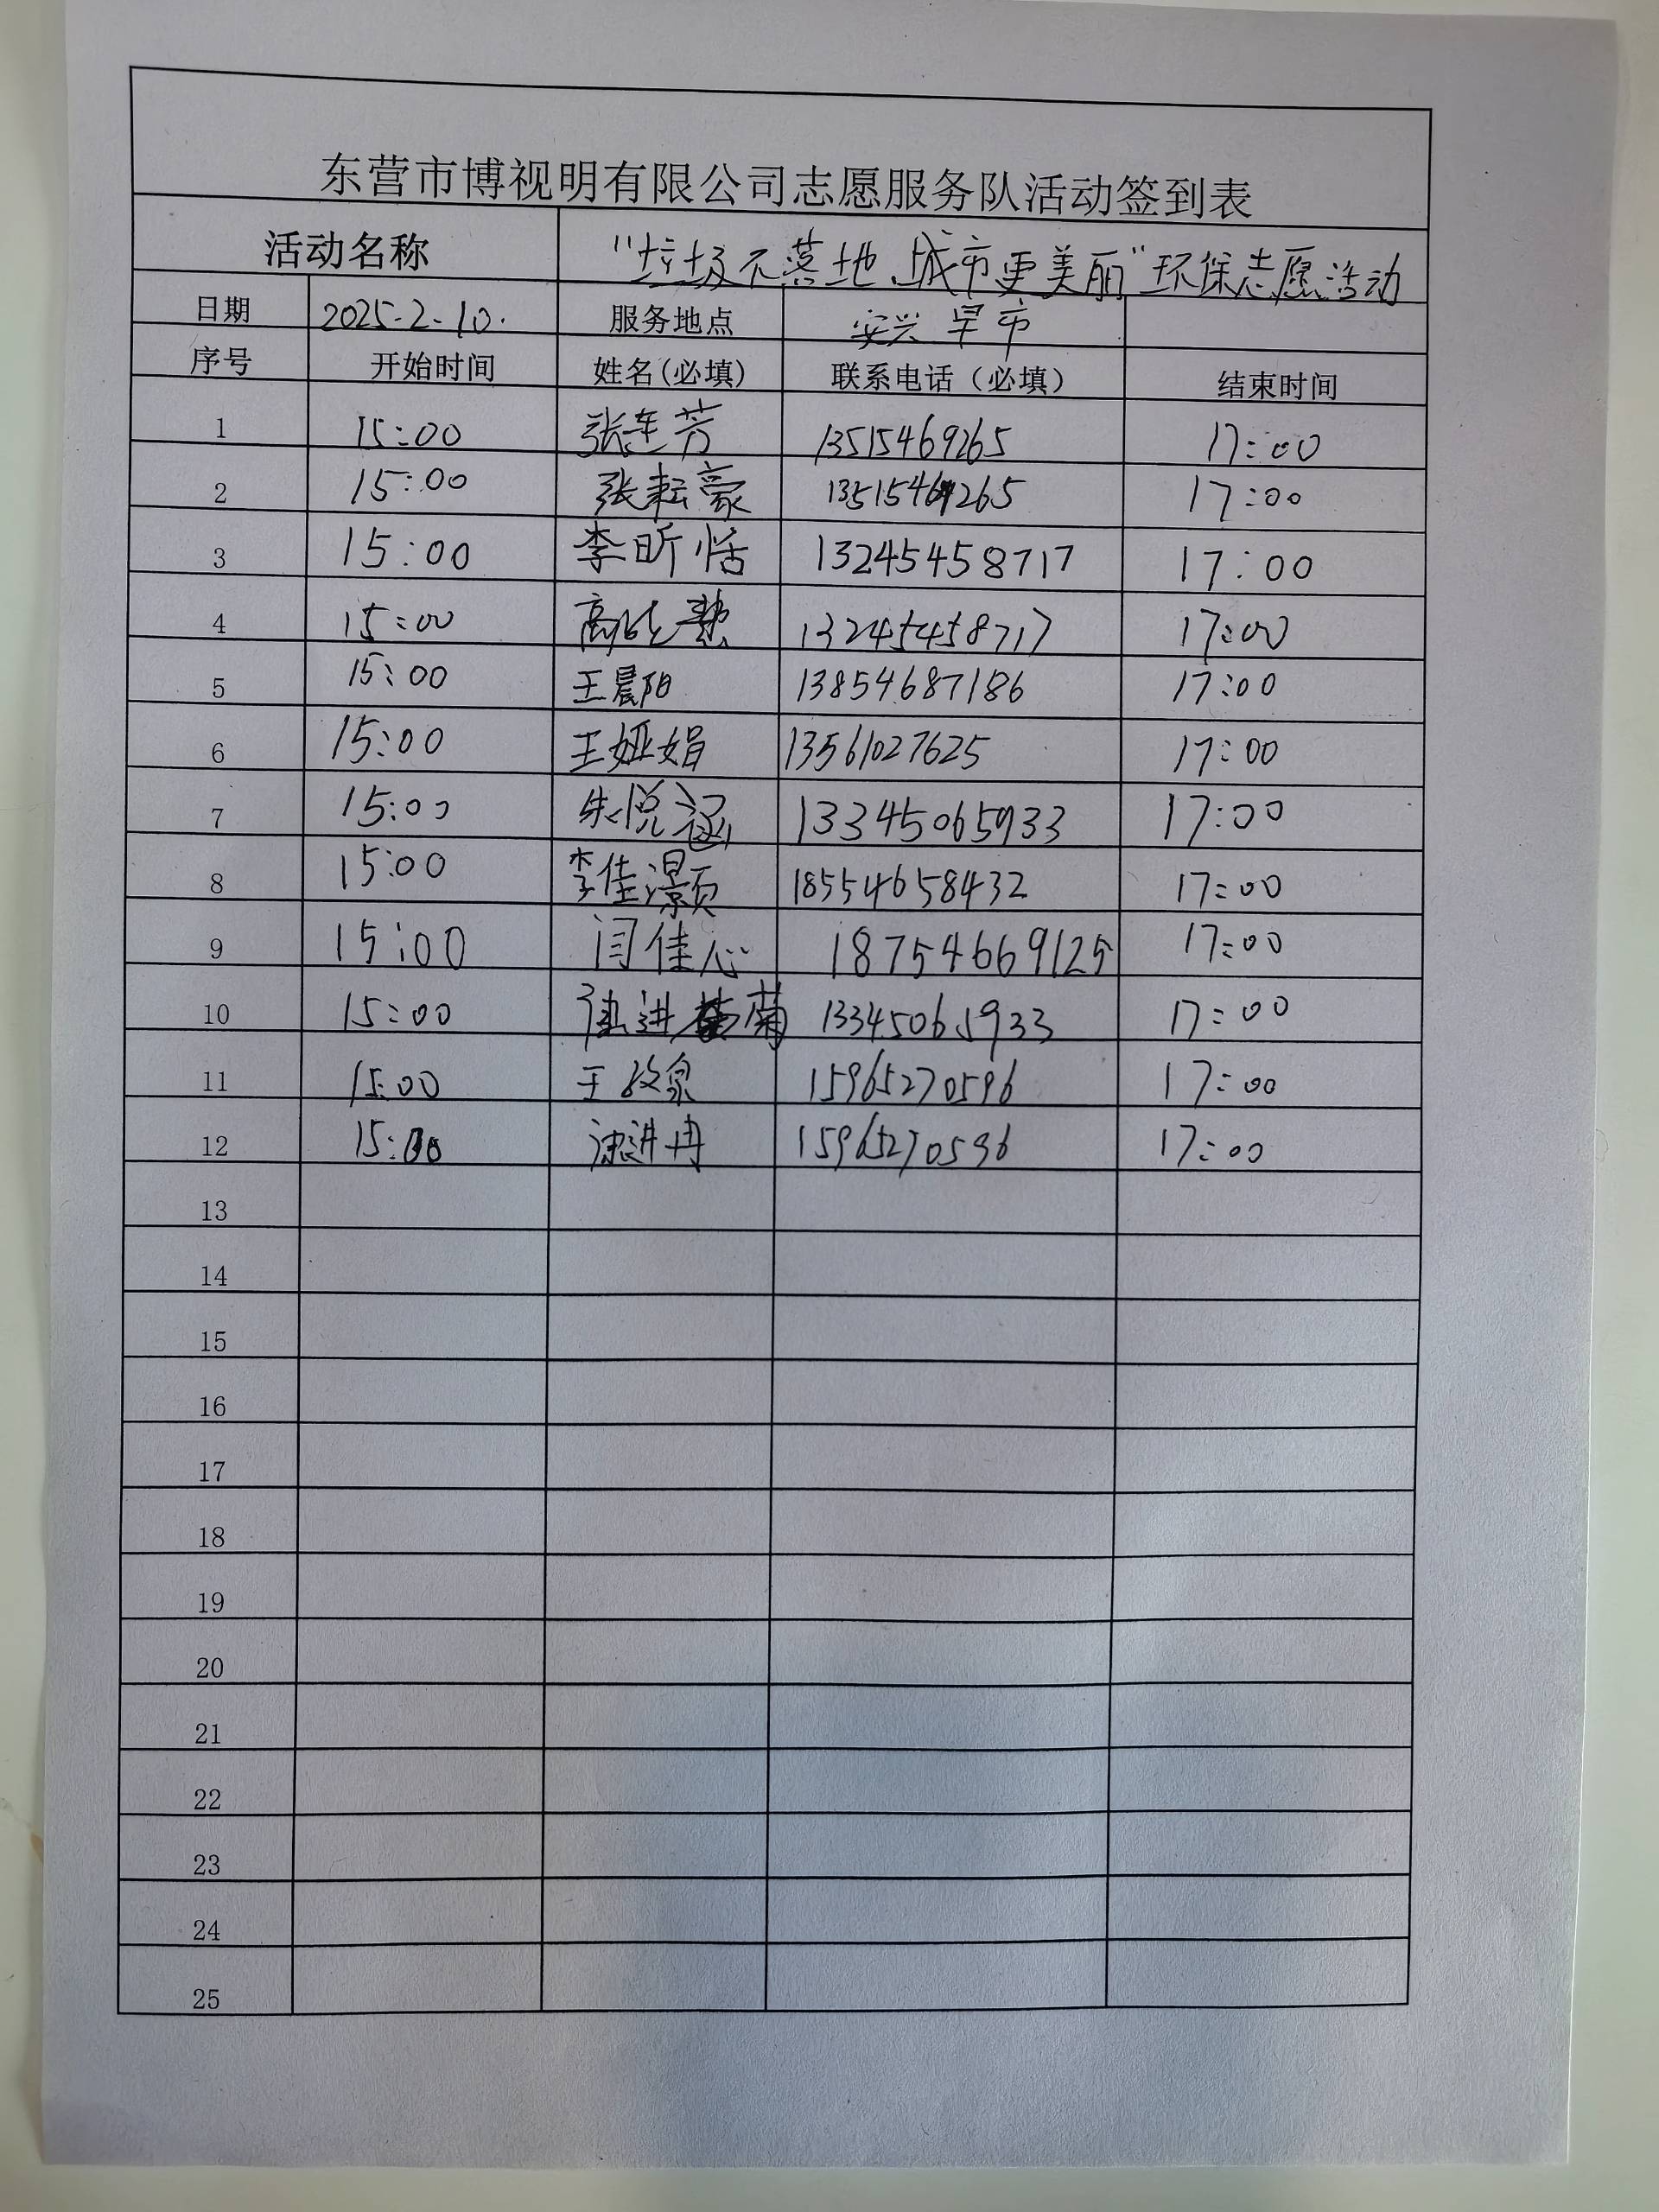 东营市博视明有限公司志愿服务队活动签到表
活动名称 "垃圾不落地、城市更美丽"环保志愿活动
日期 2025.2.10. 服务地点 安兴早市
序号 开始时间 姓名(必填) 联系电话（必填） 结束时间
1 15:00 张连芳 13515469265 17:00
2 15:00 张耘豪 13515469265 17:00
3 15:00 李昕恬 13245458717 17:00
4 15:00 13245458717 17:00
5 15:00 王晨阳 13854687186 17:00
6 15:00 王娅娟 13561027625 17:00
7 15:00 朱悦涵 13345065933 17:00
8 15:00 李佳灏 18554658432 17:00
9 15:00 闫佳心 18754669125 17:00
10 15:00 进菊 13345065933 17:00
11 15:00 王 15965270596 17:00
12 15:00 进冉 15965270596 17:00
13
14
15
16
17
18
19
20
21
22
23
24
25